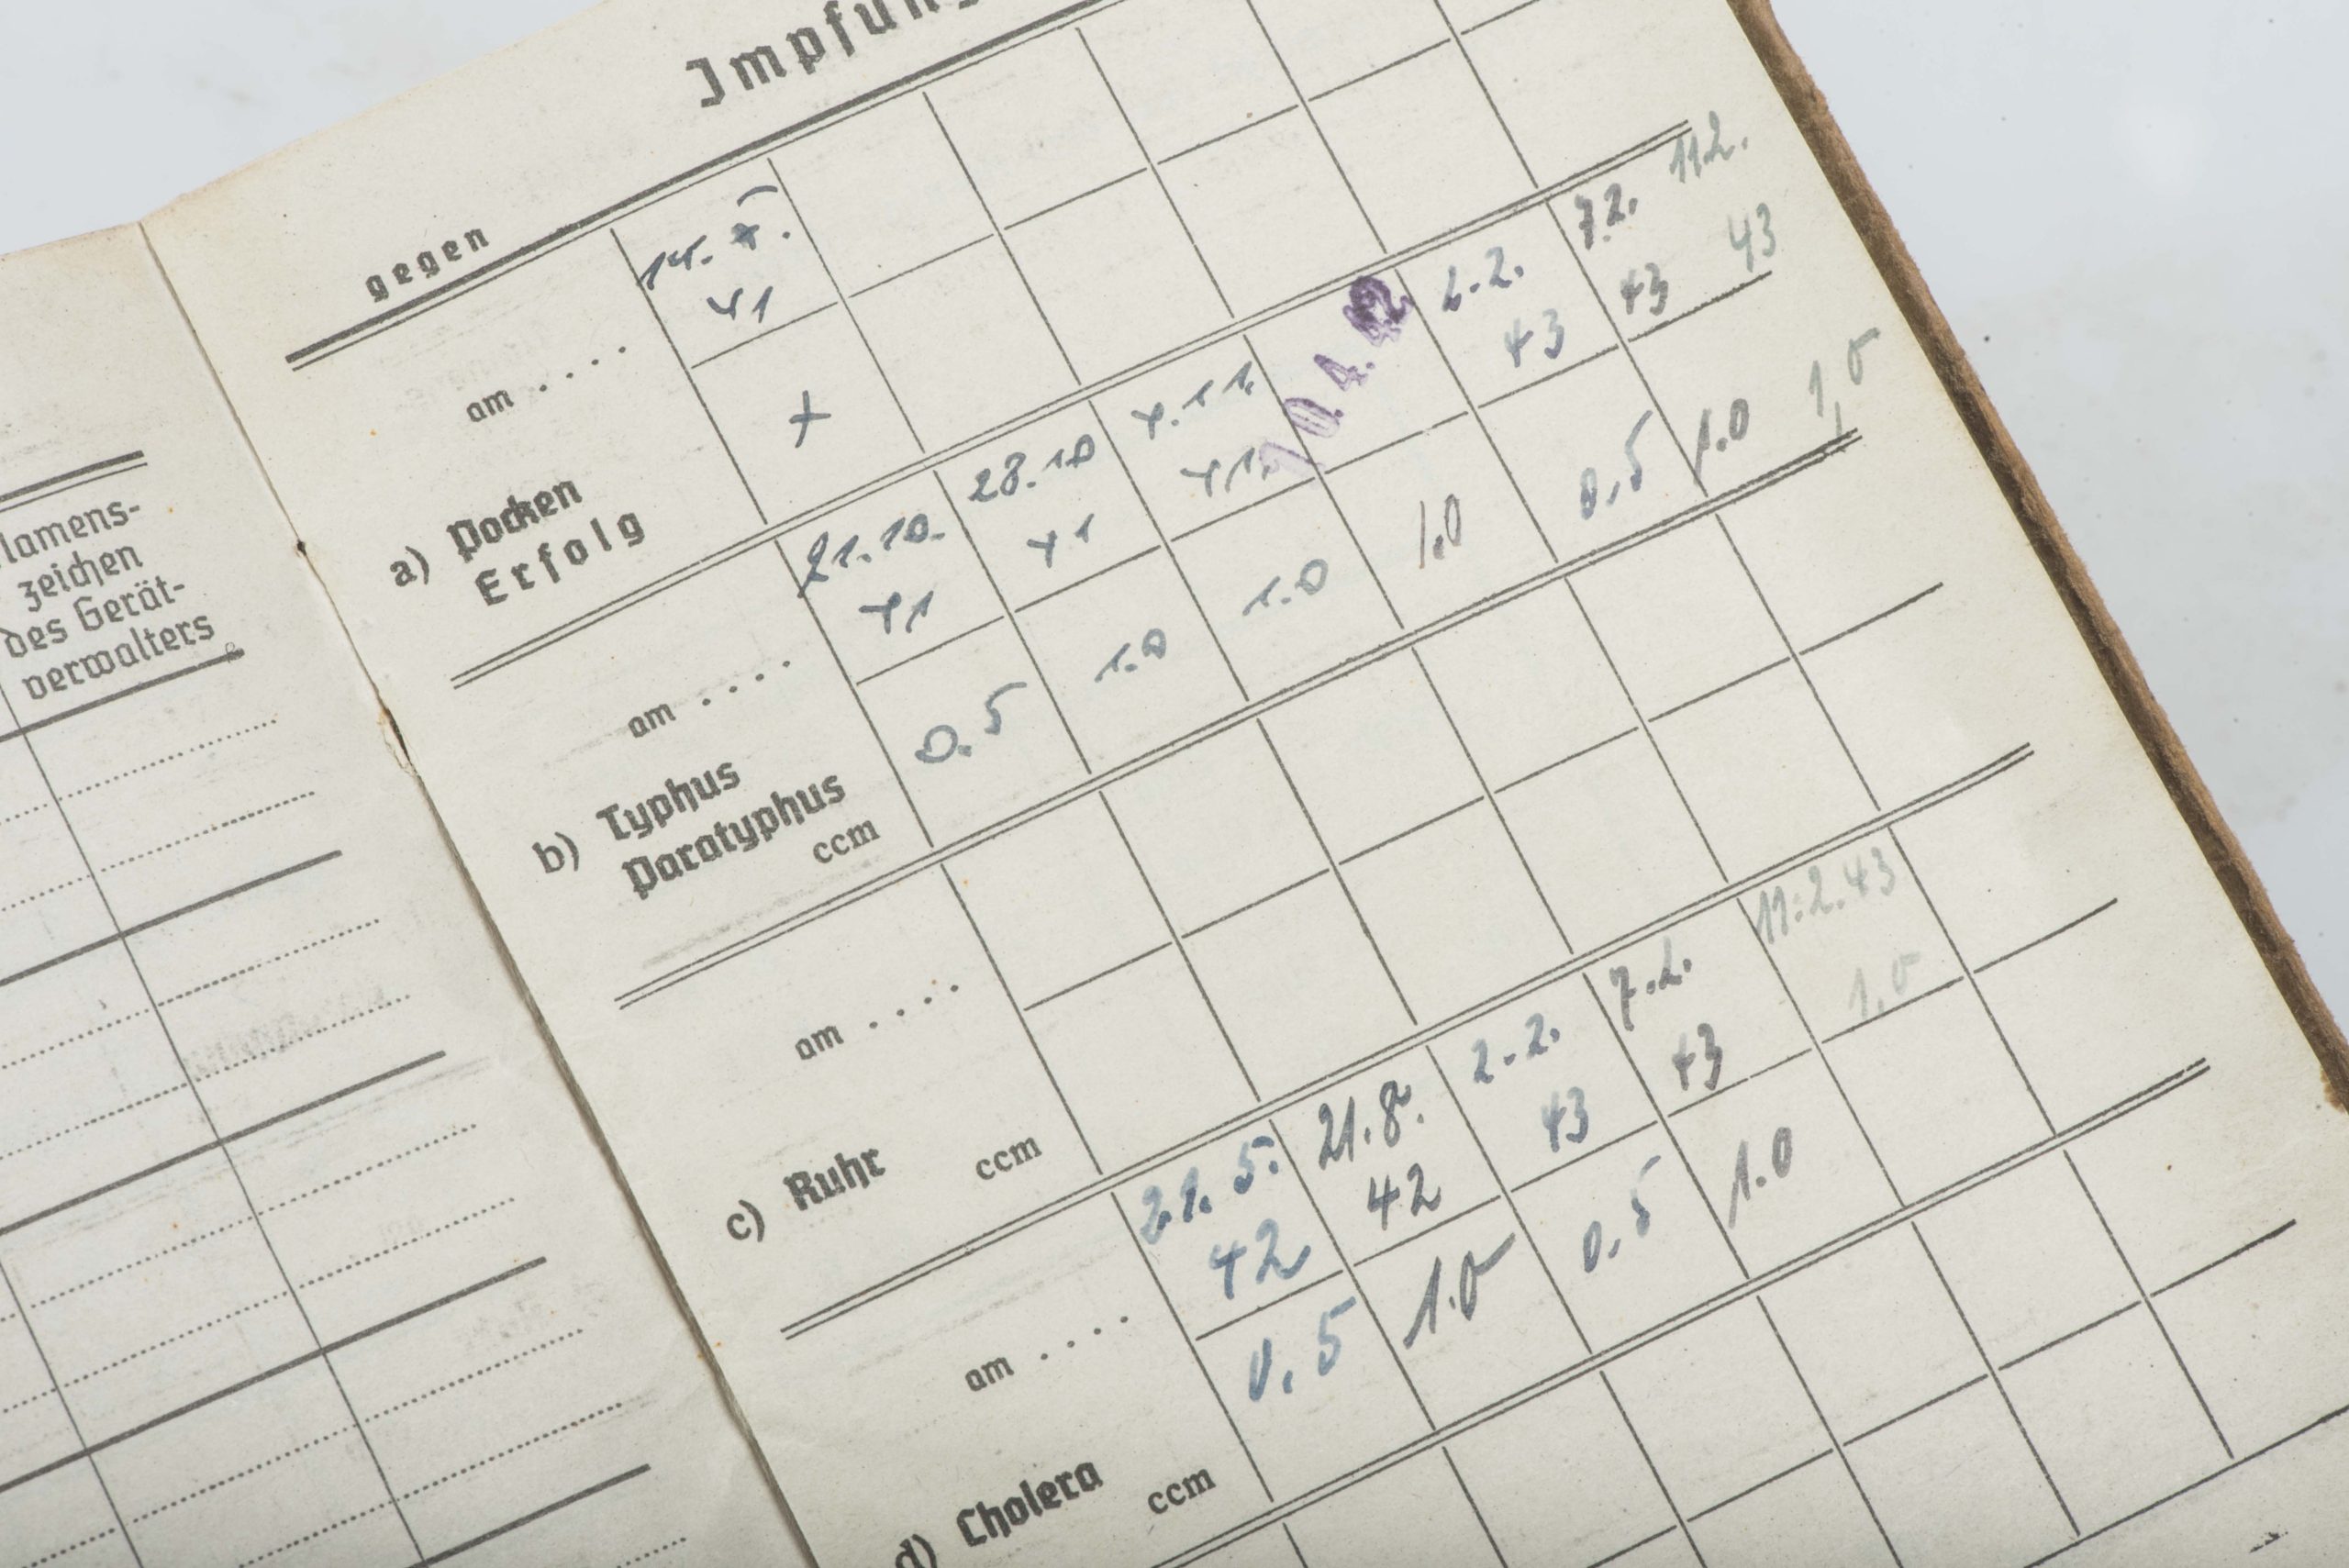 lamens-
zeichen
des Gerät-
verwalters
Impfung
gegen
am . . . .
14. 7.
41
a) Pocken
Erfolg
+
am . . . .
21.10.
41
28.10
41
4.11.
41.
10.4.42
2.2.
43
7.2.
43
11.2.
43
b) Typhus
Paratyphus
ccm
0.5
1.0
1.0
1.0
0,5
1.0
1,0
am . . . .
c) Ruhr ccm
am . . . .
21. 5.
42
21.8.
42
2.2.
43
7.2.
43
11.2.43
1.0
d) Cholera ccm
0.5
1.0
0.5
1.0